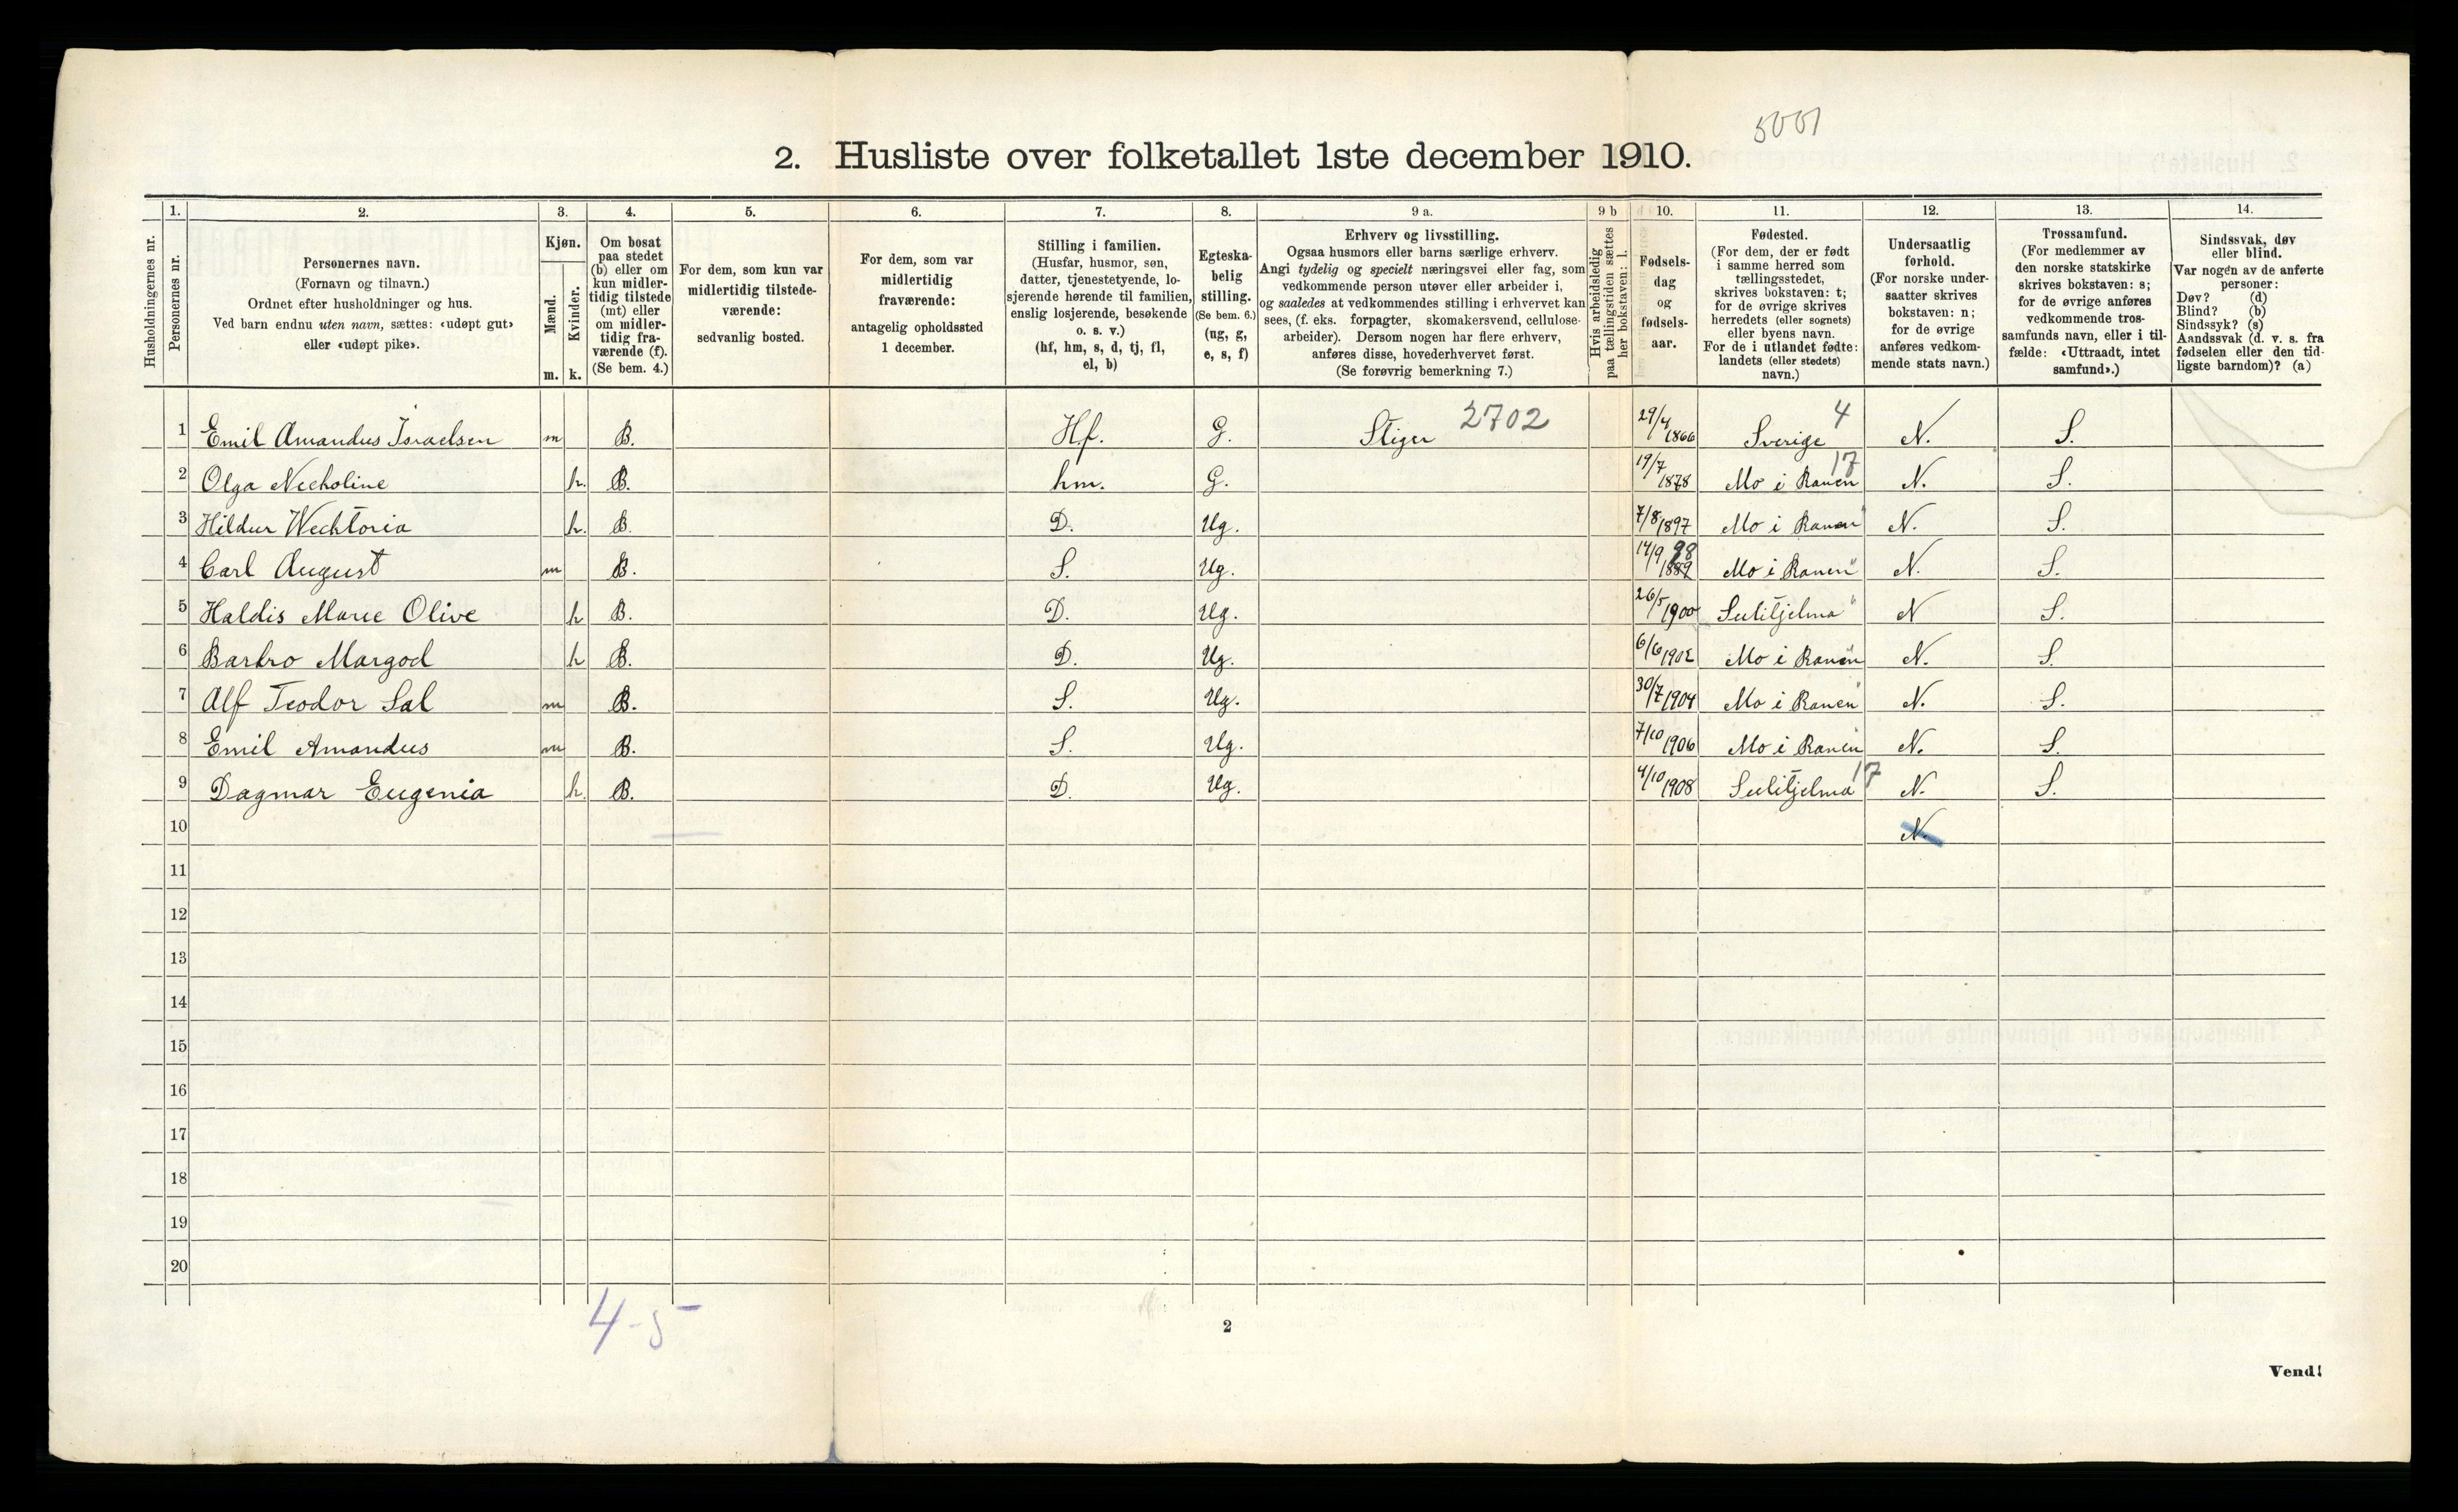 5001
2. Husliste over folketallet 1ste december 1910.
1. 2. 3. 4. 5. 6. 7. 8. 9 a. 9 b 10. 11. 12. 13. 14.
Husholdningernes nr.
Personernes nr.
Personernes navn.
(Fornavn og tilnavn.)
Ordnet efter husholdninger og hus.
Ved barn endnu uten navn, sættes: «udøpt gut»
eller «udøpt pike».
Kjøn.
Mænd.
Kvinder.
m. k.
Om bosat
paa stedet
(b) eller om
kun midler-
tidig tilstede
(mt) eller
om midler-
tidig fra-
værende (f).
(Se bem. 4.)
For dem, som kun var
midlertidig tilstede-
værende:
sedvanlig bosted.
For dem, som var
midlertidig
fraværende:
antagelig opholdssted
1 december.
Stilling i familien.
(Husfar, husmor, søn,
datter, tjenestetyende, lo-
sjerende hørende til familien,
enslig losjerende, besøkende
o. s. v.)
(hf, hm, s, d, tj, fl,
el, b)
Egteska-
belig
stilling.
(Se bem. 6.)
(ug, g,
e, s, f)
Erhverv og livsstilling.
Ogsaa husmors eller barns særlige erhverv.
Angi tydelig og specielt næringsvei eller fag, som
vedkommende person utøver eller arbeider i,
og saaledes at vedkommendes stilling i erhvervet kan
sees, (f. eks. forpagter, skomakersvend, cellulose-
arbeider). Dersom nogen har flere erhverv,
anføres disse, hovederhvervet først.
(Se forøvrig bemerkning 7.)
Hvis arbeidsledig
paa tællingstiden sættes
her bokstaven: l.
Fødsels-
dag
og
fødsels-
aar.
Fødested.
(For dem, der er født
i samme herred som
tællingsstedet,
skrives bokstaven: t;
for de øvrige skrives
herredets (eller sognets)
eller byens navn.
For de i utlandet fødte:
landets (eller stedets)
navn.)
Undersaatlig
forhold.
(For norske under-
saatter skrives
bokstaven: n;
for de øvrige
anføres vedkom-
mende stats navn.)
Trossamfund.
(For medlemmer av
den norske statskirke
skrives bokstaven: s;
for de øvrige anføres
vedkommende tros-
samfunds navn, eller i til-
fælde: «Uttraadt, intet
samfund».)
Sindssvak, døv
eller blind.
Var nogen av de anførte
personer:
Døv? (d)
Blind? (b)
Sindssyk? (s)
Aandssvak (d. v. s. fra
fødselen eller den tid-
ligste barndom)? (a)
1 Emil Amandus Israelsen m B. Hf. G. Stiger 2702 29/4 1866 Sverige 4 N. S.
2 Olga Necholine k. B. hm. G. 19/7 1878 Mo i Ranen 17 N. S.
3 Hildur Wechtoria k. B. D. Ug. 7/8 1897 Mo i Ranen " N. S.
4 Carl August m B. S. Ug. 14/9 98 Mo i Ranen " N. S.
5 Haldis Marie Olive k B. D. Ug. 26/5 1900 Sulitjelma " N S.
6 Barbro Margod k B. D. Ug. 6/6 1902 Mo i Ranen " N. S.
7 Alf Teodor Sal m B. S. Ug. 30/7 1904 Mo i Ranen " N. S.
8 Emil Amandus m B. S. Ug. 7/10 1906 Mo i Ranen " N. S.
9 Dagmar Eugenia k. B. D. Ug. 4/10 1908 Sulitjelma 17 N. S.
10 N.
11
12
13
14
15
16
17
18
19
20
4-5
2
Vend!